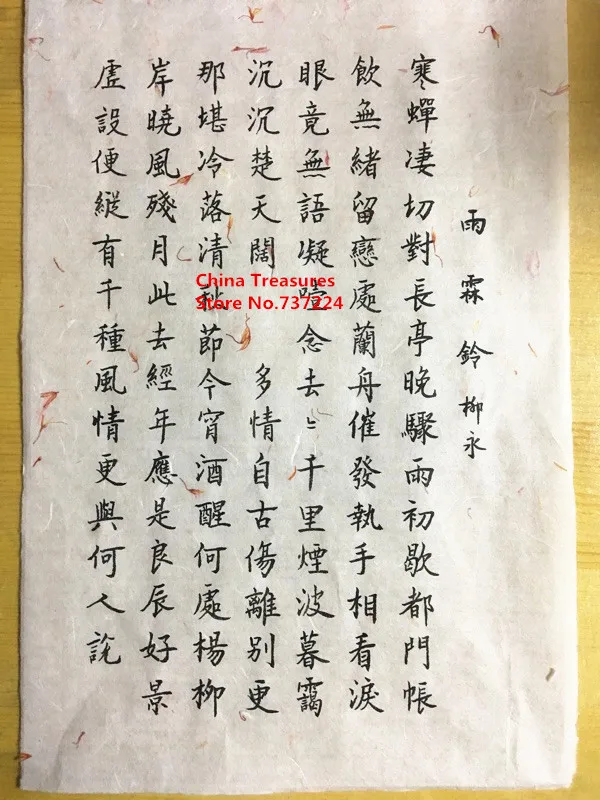 雨霖鈴 柳永
寒蟬凄切對長亭晚驟雨初歇都門帳
飲無緒留戀處蘭舟催發執手相看淚
眼竟無語凝噎念去〻千里煙波暮靄
沉沉楚天闊 多情自古傷離別更
那堪冷落清秋節今宵酒醒何處楊柳
岸曉風殘月此去經年應是良辰好景
虛設便縱有千種風情更與何人說
China Treasures
Store No.737224